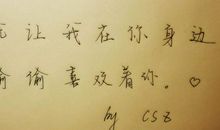 让我在你身边
偷偷喜欢着你。♡
by csz